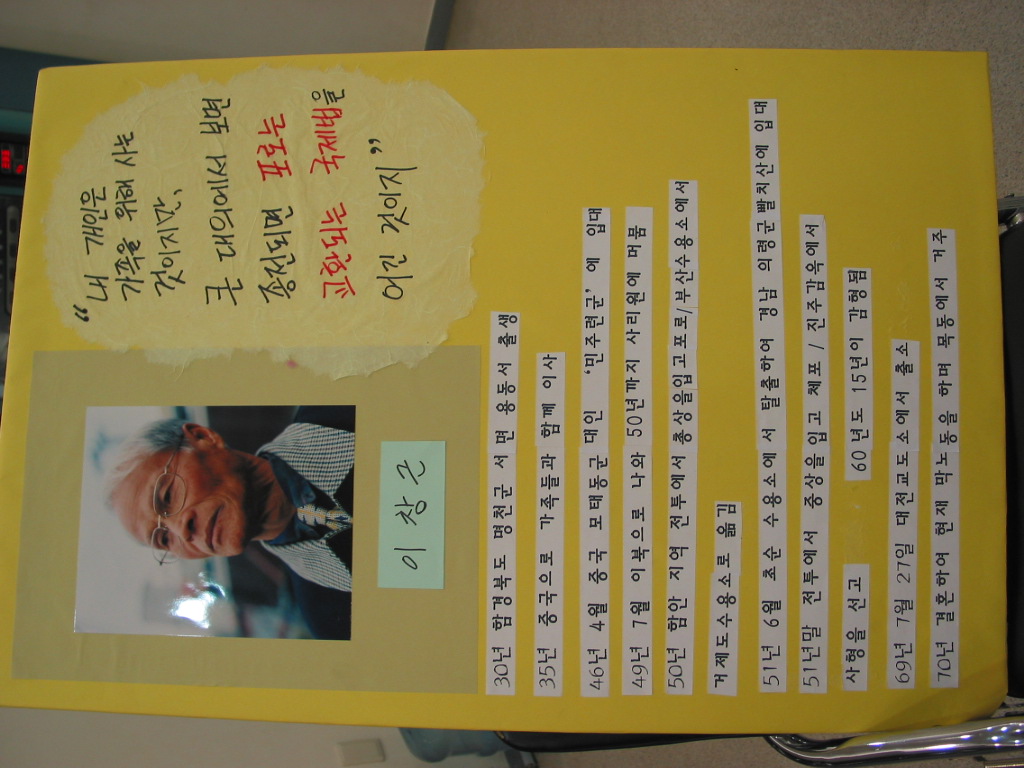 "내 개인은
가족을 위해 사는
것이지만,
큰 대의에서 보면
종전되면 포로는
교환되는 국제법을
어긴 것이지"
이창근
30년 함경북도 명천군 서면 용동서 출생
35년 중국으로 가족들과 함께 이사
46년 4월 중국 모태동군 대인 '민주련군'에 입대
49년 7월 이북으로 나와 50년까지 사리원에 머뭄
50년 함안 지역 전투에서 총상을입고포로/부산수용소에서
거제도수용소로 옮김
51년 6월 초순 수용소에서 탈출하여 경남 의령군빨치산에 입대
51년말 전투에서 중상을입고 체포 / 진주감옥에서
사형을 선고 60년도 15년이 감형됨
69년 7월 27일 대전교도소에서 출소
70년 결혼하여 현재 막노동을 하며 목동에서 거주